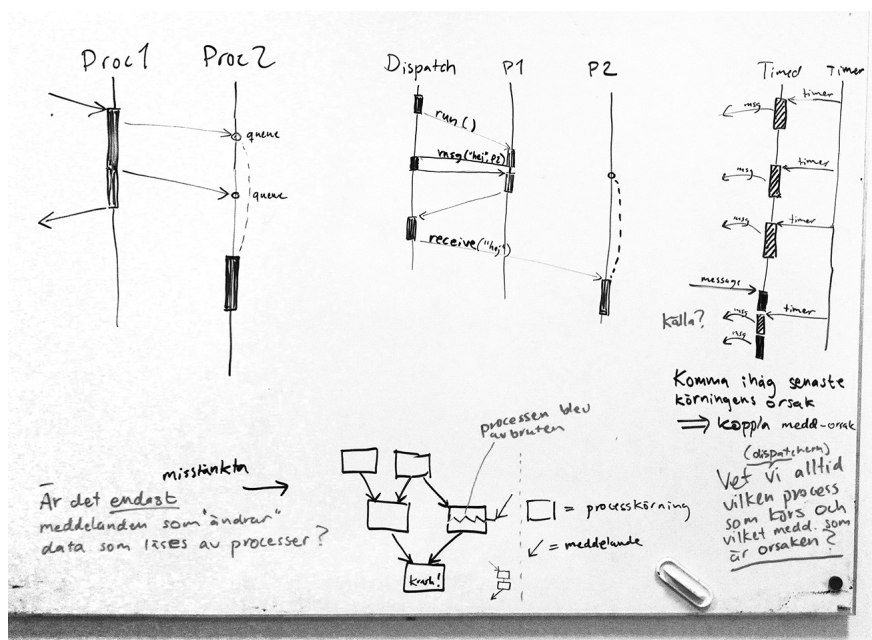 Proc1
Proc2
queue
queue
Dispatch
P1
P2
run()
msg("hej", P2)
receive("hej")
Timed
Timer
msg
timer
msg
timer
msg
timer
message
Källa?
msg
timer
msg
Komma ihåg senaste
körningens orsak
⇒ koppla medd-orsak
(dispatchern)
Vet vi alltid
vilken process
som körs och
vilket medd. som
är orsaken?
processen blev
avbruten
misstänkta →
Är det endast
meddelanden som "ändrar"
data som läses av processer?
krash!
□ = processkörning
↙ = meddelande